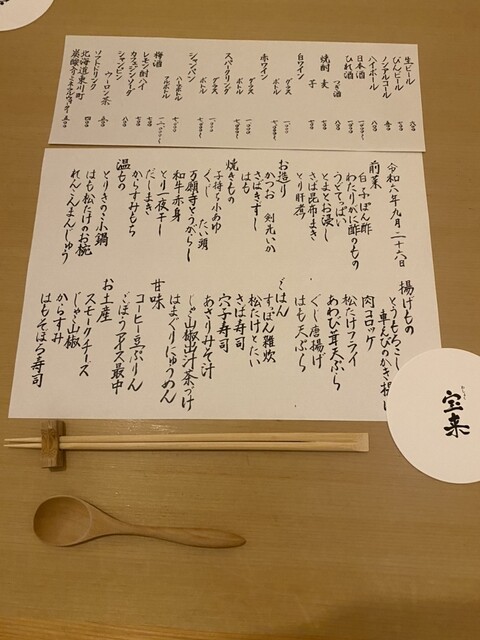 生ビール
びんビール
ノンアルコール
ハイボール
日本酒
ひれ酒
つぎ酒
焼酎 麦
芋
白ワイン
グラス
ボトル
赤ワイン
グラス
ボトル
スパークリング
グラス
ボトル
シャンパン
グラス
ボトル
ハーフボトル
フルボトル
梅酒
レモン酎ハイ
カシスソーダ
シャンピン
ウーロン茶
ソフトドリンク
北海道東川町
令和六年九月二十六日
前菜
白子ぽん酢
わたりがに酢のもの
うざくてっぱい
とまとお浸し
さば昆布まき
とり肝煮
お造り
かつお 剣先いか
さばきずし
はも
焼きもの
子持ち小あゆ
ぐじ たい頭
万願寺とうがらし
和牛赤身
とり一夜干し
だしまき
からすみもち
温もの
とりきのこ小鍋
はも松たけのお椀
れんこんまんじゅう
揚げもの
とうもろこし
車えびのかき揚げ
肉コロッケ
松たけフライ
あわび茸天ぷら
ぐじ唐揚げ
はも天ぷら
ごはん
すっぽん雑炊
松たけとたい
さば寿司
穴子寿司
あさりみそ汁
じゃこ山椒出汁茶づけ
はまぐりにゅうめん
甘味
コーヒー豆ぷりん
ごぼうアイス最中
お土産
スモークチーズ
じゃこ山椒
からすみ
はもそぼろ寿司
宝来